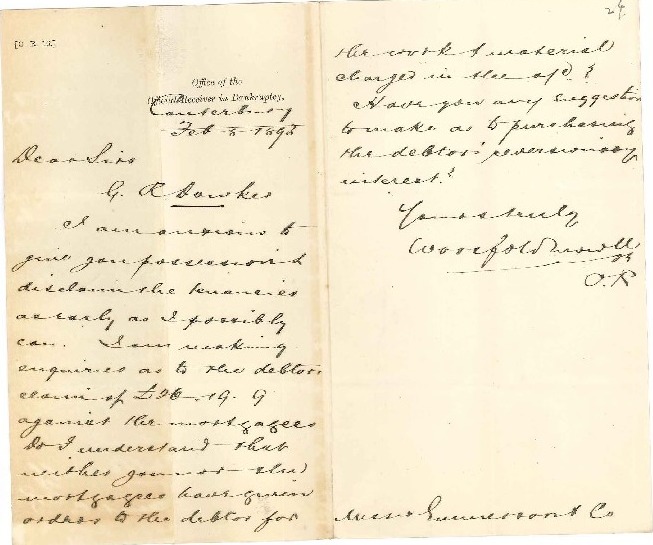 Office of the
Official Receiver in Bankruptcy,
Canterbury
Feb 5 189
Dear Sirs
G. R Dawkes
I am anxious to
give you possession &
disclaim the tenancies
as early as I possibly
can. I am making
enquiries as to the debtors
claim of £26-19-9
against the mortgagees
Do I understand that
neither you nor the
mortgagees have given
orders to the debtor for
24
the work & material
charged in the a/c?
Have you any suggestion
to make as to purchasing
the debtors' reversionary
interest?
Yours truly
Worsfold
O. R
Messrs Emmerson & Co